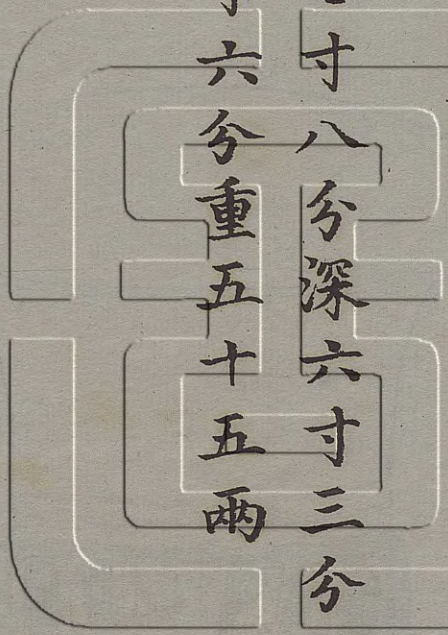 寸八分深六寸三分
六分重五十五兩